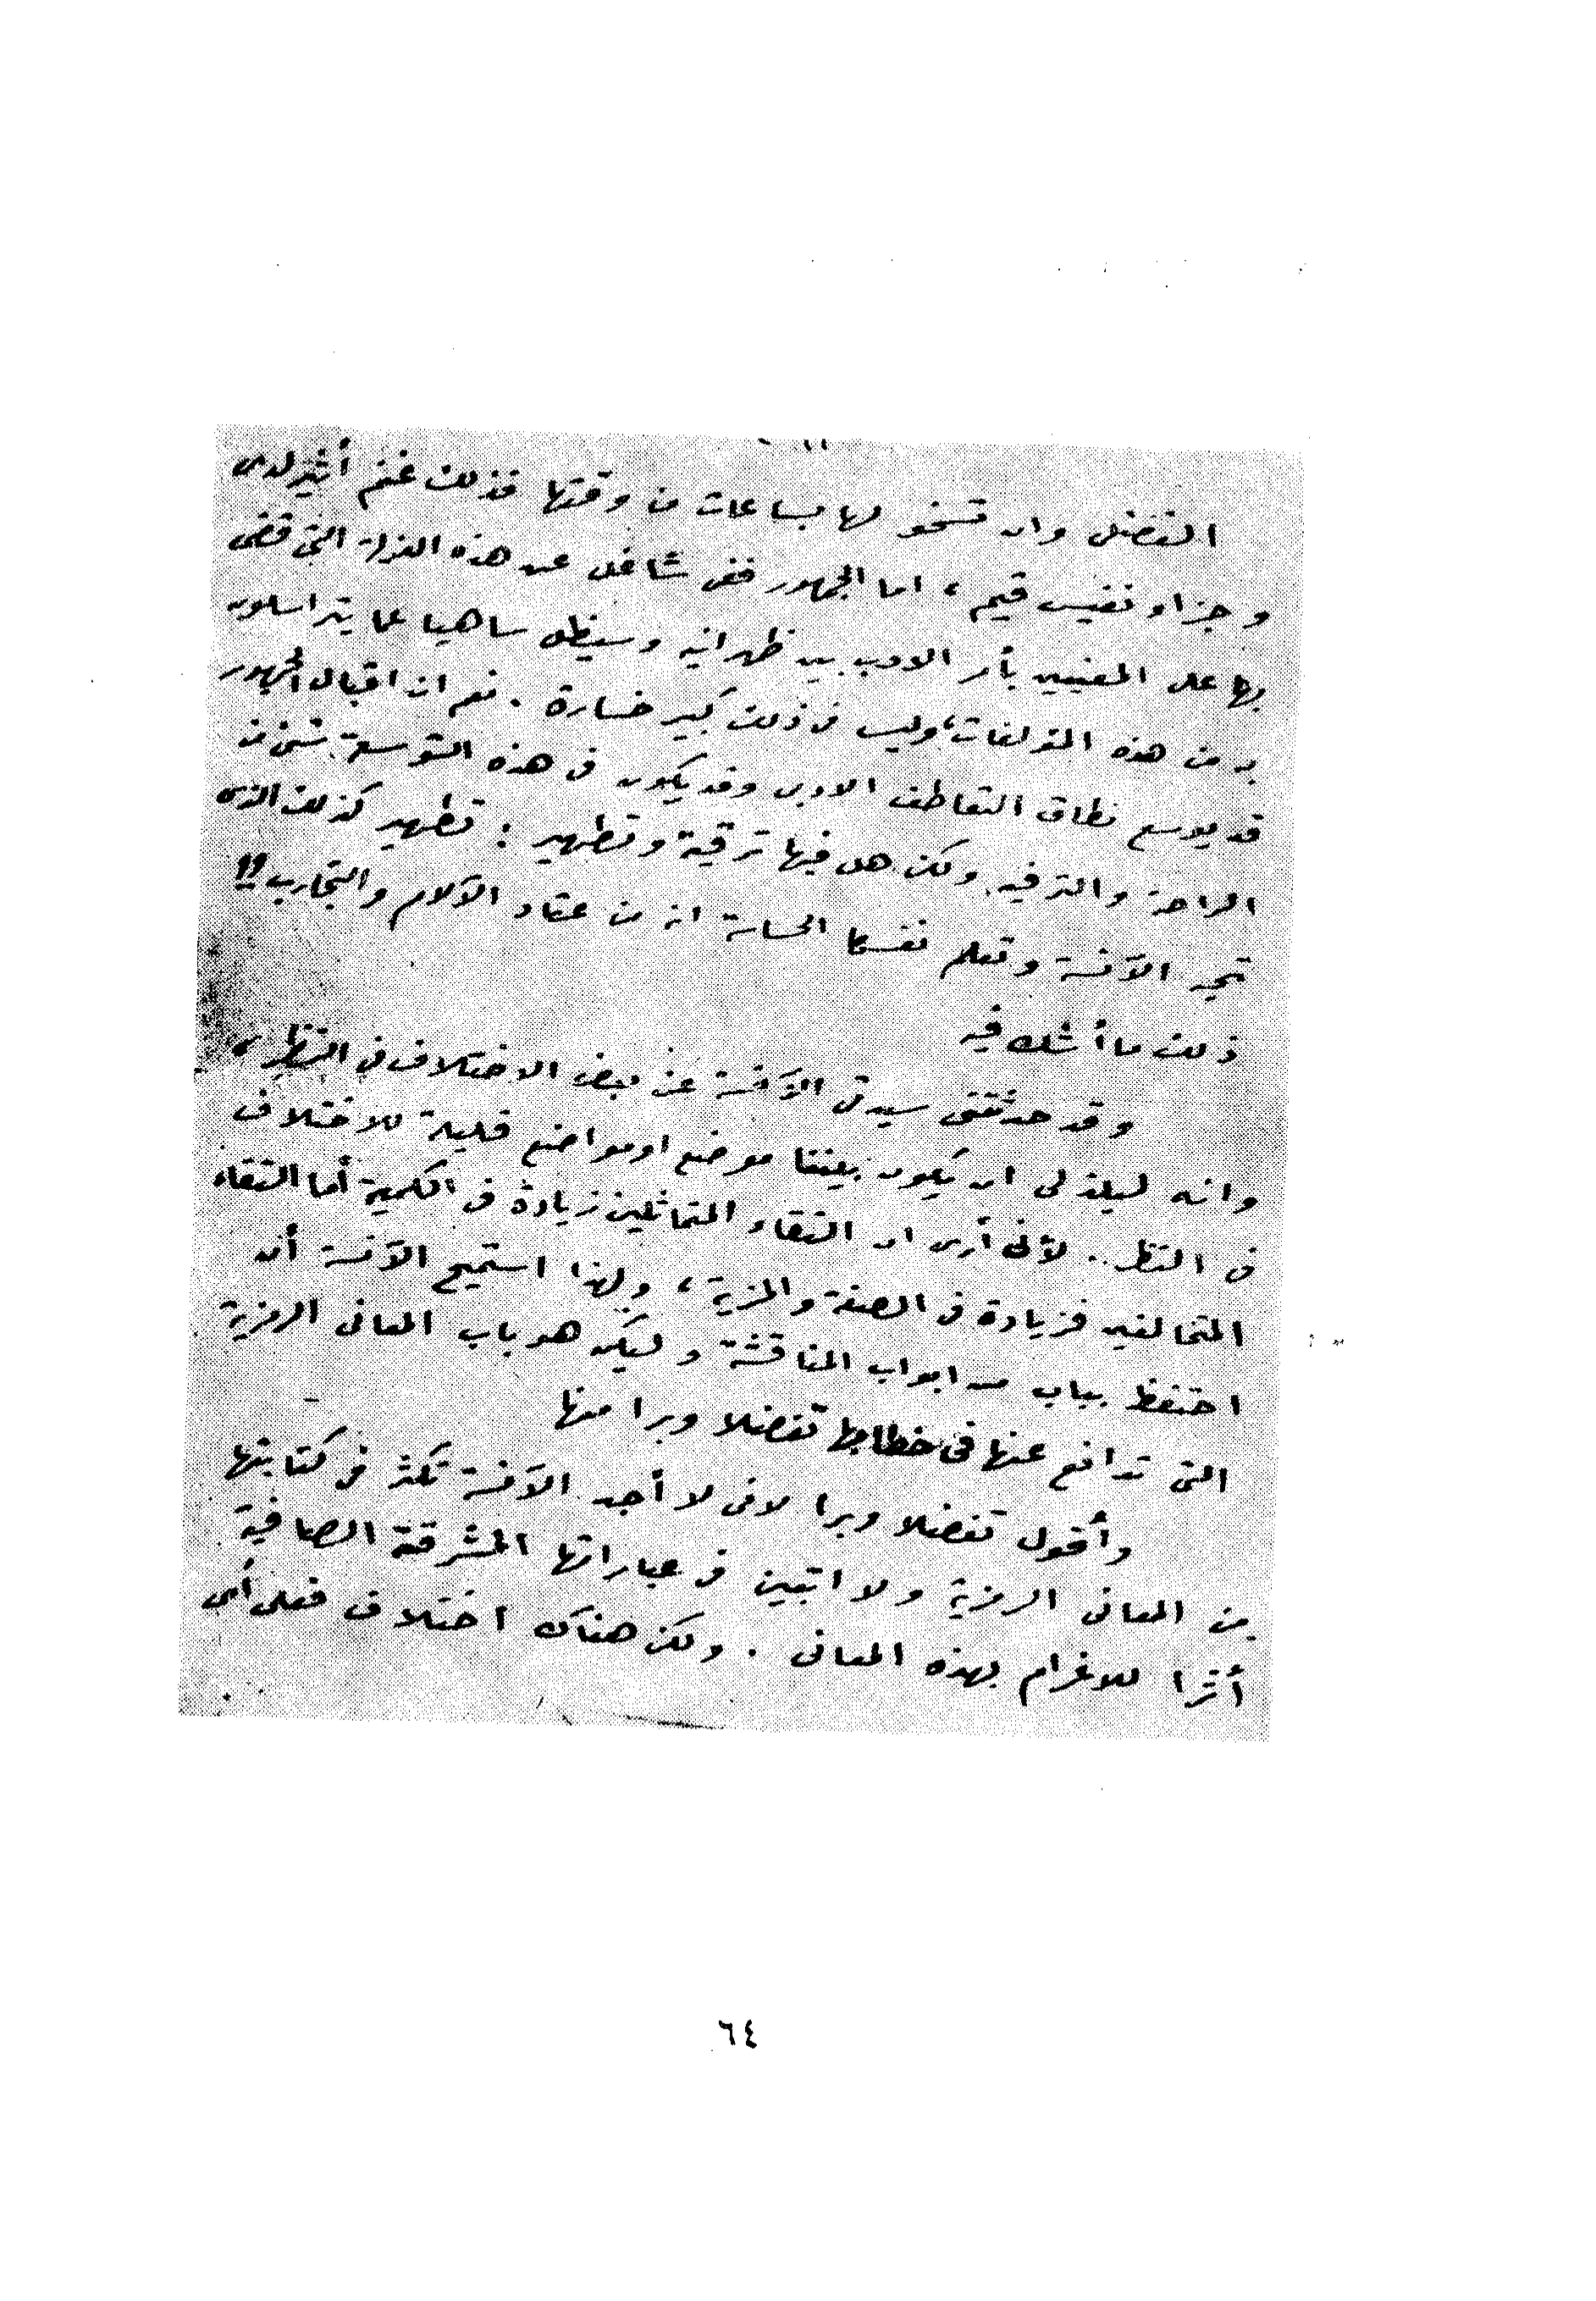 التفضل وان تسخو لها بساعات من وقتها فذلك غنم أثير لدى
وجزاء نفيس قيم ، اما الجمهور ففى شاغل عن هذه العزلة التى قضى
بها على المعنيين بأمر الادب بين ظهرانيه وسيظل ساهيا عما يتراسلون
به من هذه المؤلفات، وليس فى ذلك كبير خسارة . نعم ان اقبال الجمهور
قد يوسع نطاق التعاطف الادبى وقد يكون فى هذه التوسعة شئ من
الراحة والترفيه ولكن هل فيها ترقية وتطهير : تطهير كذلك الذى
تجد الآنسة وتعلم نفسها الحساسة انه من عتاد الآلام والتجارب؟!
ذلك ما أشك فيه
وقد حدثتنى سيدتى الآنسة عن بعض الاختلاف فى النظر
وانه ليلذ لى ان يكون بيننا موضع او مواضع قليلة للاختلاف
فى النظر . لأنى أرى ان التقاء المتماثلين زيادة فى الكمية أما التقاء
المتخالفين فزيادة فى الصفة والمزية ، ولهذا استميح الآنسة أن
احتفظ بباب من ابواب المناقشة وليكن هو باب المعانى الرمزية
التى تدافع عنها فى خطابها تفضلا وبرا منها
وأقول تفضلا وبرا لانى لا أجد الآنسة تكثر فى كتابتها
من المعانى الرمزية ولا اتبين فى عباراتها المشرقة الصافية
أثرا للاغرام بهذه المعانى . ولكن هناك اختلاف فعلى أى
٦٤